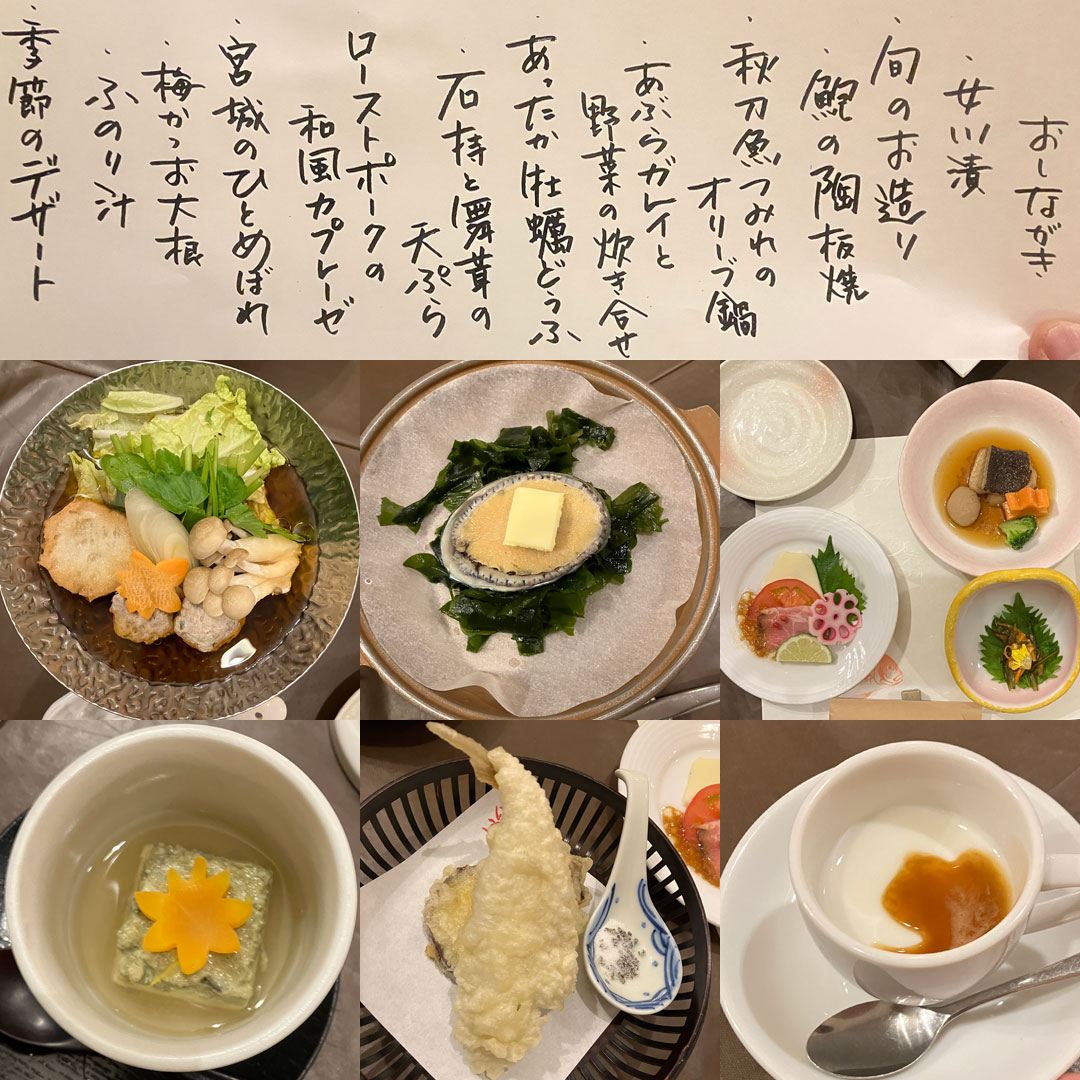 おしながき
・女川漬
・旬のお造り
・鮑の陶板焼
・秋刀魚つみれの
オリーブ鍋
・あぶらガレイと
野菜の炊き合せ
・あったか牡蠣どうふ
・石持と舞茸の
天ぷら
・ローストポークの
和風カプレーゼ
・宮城のひとめぼれ
・梅かつお大根
・ふのり汁
・季節のデザート